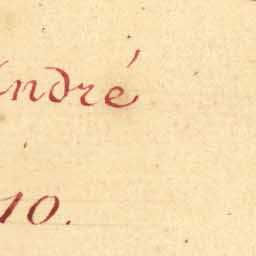 André
10.